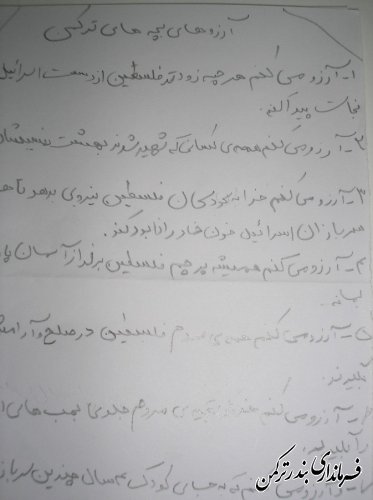 آرزوهای بچه های ترکمن
۱- آرزو می کنم هر چه زودتر فلسطین از دست اسرائیل
نجات پیدا کند.
۲- آرزو می کنم همه ی کسانی که شهید شدند بهشت نصیبشان
۳- آرزو می کنم خدا به کودکان فلسطین نیروی بدهد تا
سربازان اسرائیل خون خوار را نابود کند.
۴- آرزو می کنم همیشه پرچم فلسطین بر فراز آسمان
بماند.
۵- آرزو می کنم همه ی مردم فلسطین در صلح و آرامش
بگیرند.
آرزو می کنم مردم جلوی بمب های
را بگیرند.
آرزو می کنم که به جای کودک سال چندین سرباز
فرمانداری بندرترکمن